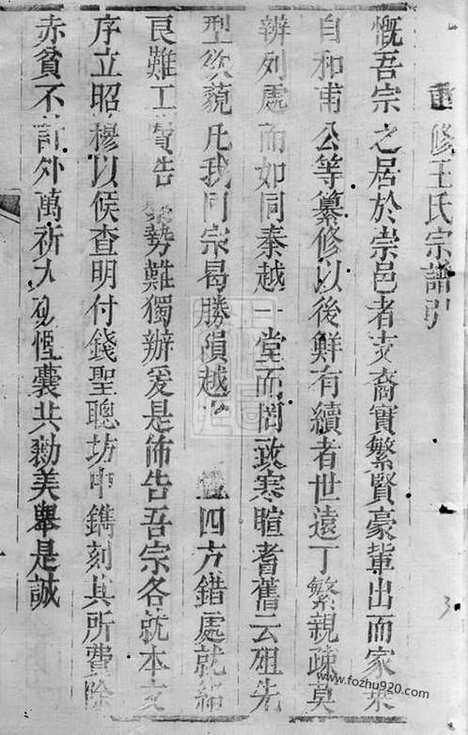 重修王氏宗譜引
慨吾宗之居於崇邑者支裔實繁賢豪輩出而家乘
自和甫公等纂修以後鮮有續者世遠丁繁親疎莫
辨列處而如同秦越一堂而罔致寒暄耆舊云殂先
型紛藐凡我同宗曷勝隕越 四方錯處就紹
良難工費告 勢難獨辦爰是佈告吾宗各就本支
序立昭穆以俟查明付錢聖聰坊中鐫刻其所費除
赤貧不計外萬祈大 慳囊共勷美舉是誠
www.fozhu920.com